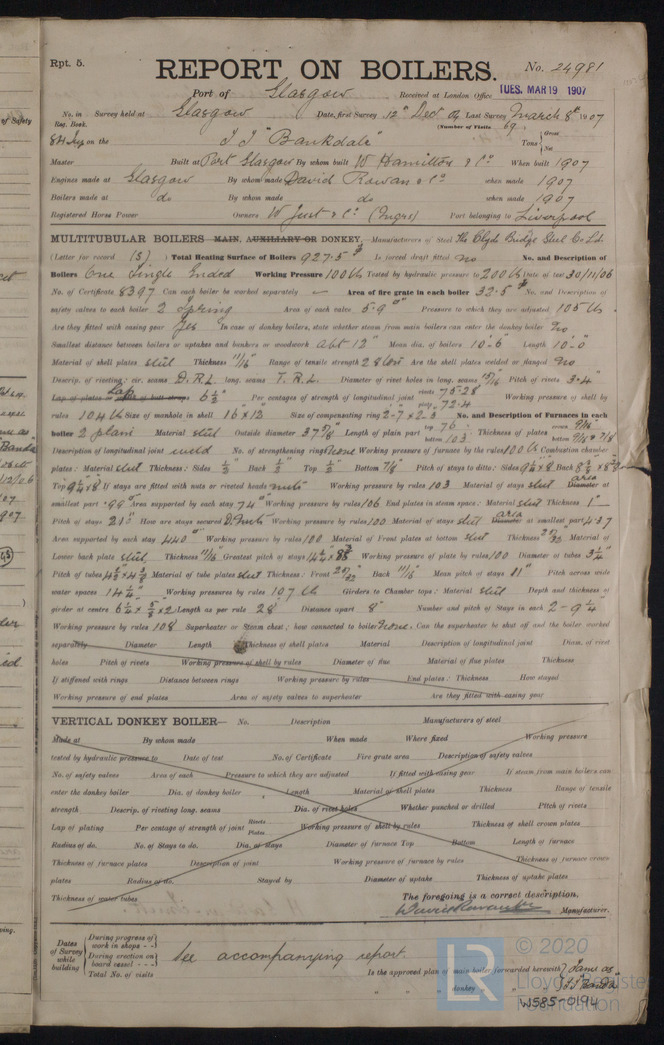 Rpt. 5.
REPORT ON BOILERS.
No. 24981
Port of Glasgow Received at London Office TUES. MAR 19 1907
No. in Reg. Book. Survey held at Glasgow Date, first Survey 12th Dec 06 Last Survey March 8th 1907
(Number of Visits 69
84 on the "Bankdale" Tons { Gross Net
Master Built at Port Glasgow By whom built W Hamilton & Co When built 1907
Engines made at Glasgow By whom made David Rowan & Co when made 1907
Boilers made at do By whom made do when made 1907
Registered Horse Power Owners W Just & Co (Mngrs) Port belonging to Liverpool
MULTITUBULAR BOILERS MAIN, AUXILIARY OR DONKEY. Manufacturers of Steel The Clyde Bridge Steel Co Ld
(Letter for record (S) ) Total Heating Surface of Boilers 927.5 Is forced draft fitted no No. and Description of
Boilers One Single Ended Working Pressure 100 lb Tested by hydraulic pressure to 200 lb Date of test 30/11/06
No. of Certificate 8397 Can each boiler be worked separately — Area of fire grate in each boiler 32.5 No. and Description of
safety valves to each boiler 2 Spring Area of each valve 5.9 Pressure to which they are adjusted 105 lb
Are they fitted with easing gear Yes In case of donkey boilers, state whether steam from main boilers can enter the donkey boiler no
Smallest distance between boilers or uptakes and bunkers or woodwork abt 12" Mean dia. of boilers 10-6" Length 10-0"
Material of shell plates steel Thickness 11/16" Range of tensile strength 28 Are the shell plates welded or flanged no
Descrip. of riveting: cir. seams D.R.L. long. seams T.R.L. Diameter of rivet holes in long. seams 15/16 Pitch of rivets 3.4"
Lap of plates or width of butt straps 6 1/2" Per centages of strength of longitudinal joint rivets 75.28 plate 72.4 Working pressure of shell by
rules 104 lb Size of manhole in shell 16 x 12 Size of compensating ring 2-7 x 2-3 No. and Description of Furnaces in each
boiler 2 plain Material steel Outside diameter 37 5/8" Length of plain part top 76 bottom 103 Thickness of plates crown 9/16 bottom 9/16 & 7/8
Description of longitudinal joint weld No. of strengthening rings None Working pressure of furnace by the rules 100 lb Combustion chamber
plates: Material steel Thickness: Sides 1/2" Back 1/2" Top 1/2" Bottom 7/8" Pitch of stays to ditto: Sides 9 1/4 x 8 Back
Top 9 1/4 x 8 If stays are fitted with nuts or riveted heads nuts Working pressure by rules 103 Material of stays steel Diameter area at
smallest part .99 Area supported by each stay 74 Working pressure by rules 106 End plates in steam space: Material steel Thickness 1"
Pitch of stays 21 How are stays secured D.Nuts Working pressure by rules 100 Material of stays steel Diameter area at smallest part 4.37
Area supported by each stay 440 Working pressure by rules 100 Material of Front plates at bottom steel Thickness 25/32 Material of
Lower back plate steel Thickness 11/16" Greatest pitch of stays Working pressure of plate by rules 100 Diameter of tubes 3 1/4"
Pitch of tubes Material of tube plates steel Thickness: Front 25/32 Back 11/16" Mean pitch of stays 11" Pitch across wide
water spaces 14 1/4" Working pressures by rules 107 lb Girders to Chamber tops: Material steel Depth and thickness of
girder at centre 6 1/4 x 5/8 x 2 Length as per rule 28" Distance apart 8" Number and pitch of Stays in each 2-9 1/4
Working pressure by rules 108 Superheater or Steam chest; how connected to boiler None Can the superheater be shut off and the boiler worked
separately Diameter Length Thickness of shell plates Material Description of longitudinal joint Diam. of rivet
holes Pitch of rivets Working pressure of shell by rules Diameter of flue Material of flue plates Thickness
If stiffened with rings Distance between rings Working pressure by rules End plates: Thickness How stayed
Working pressure of end plates Area of safety valves to superheater Are they fitted with easing gear
VERTICAL DONKEY BOILER— No. Description Manufacturers of steel
Made at By whom made When made Where fixed Working pressure
tested by hydraulic pressure to Date of test No. of Certificate Fire grate area Description of safety valves
No. of safety valves Area of each Pressure to which they are adjusted If fitted with easing gear If steam from main boilers can
enter the donkey boiler Dia. of donkey boiler Length Material of shell plates Thickness Range of tensile
strength Descrip. of riveting long. seams Dia. of rivet holes Whether punched or drilled Pitch of rivets
Lap of plating Per centage of strength of joint Rivets Plates Working pressure of shell by rules Thickness of shell crown plates
Radius of do. No. of Stays to do. Dia. of stays Diameter of furnace Top Bottom Length of furnace
Thickness of furnace plates Description of joint Working pressure of furnace by rules Thickness of furnace crown
plates Radius of do. Stayed by Diameter of uptake Thickness of uptake plates
Thickness of water tubes
The foregoing is a correct description,
David Rowan & Co Manufacturer.
Dates of Survey while building
During progress of work in shops - -
During erection on board vessel - - -
Total No. of visits
See accompanying report.
Is the approved plan of main boiler forwarded herewith Same as
" " " donkey " " "
© 2020
LR
Lloyd's Register
Foundation
W585-0194